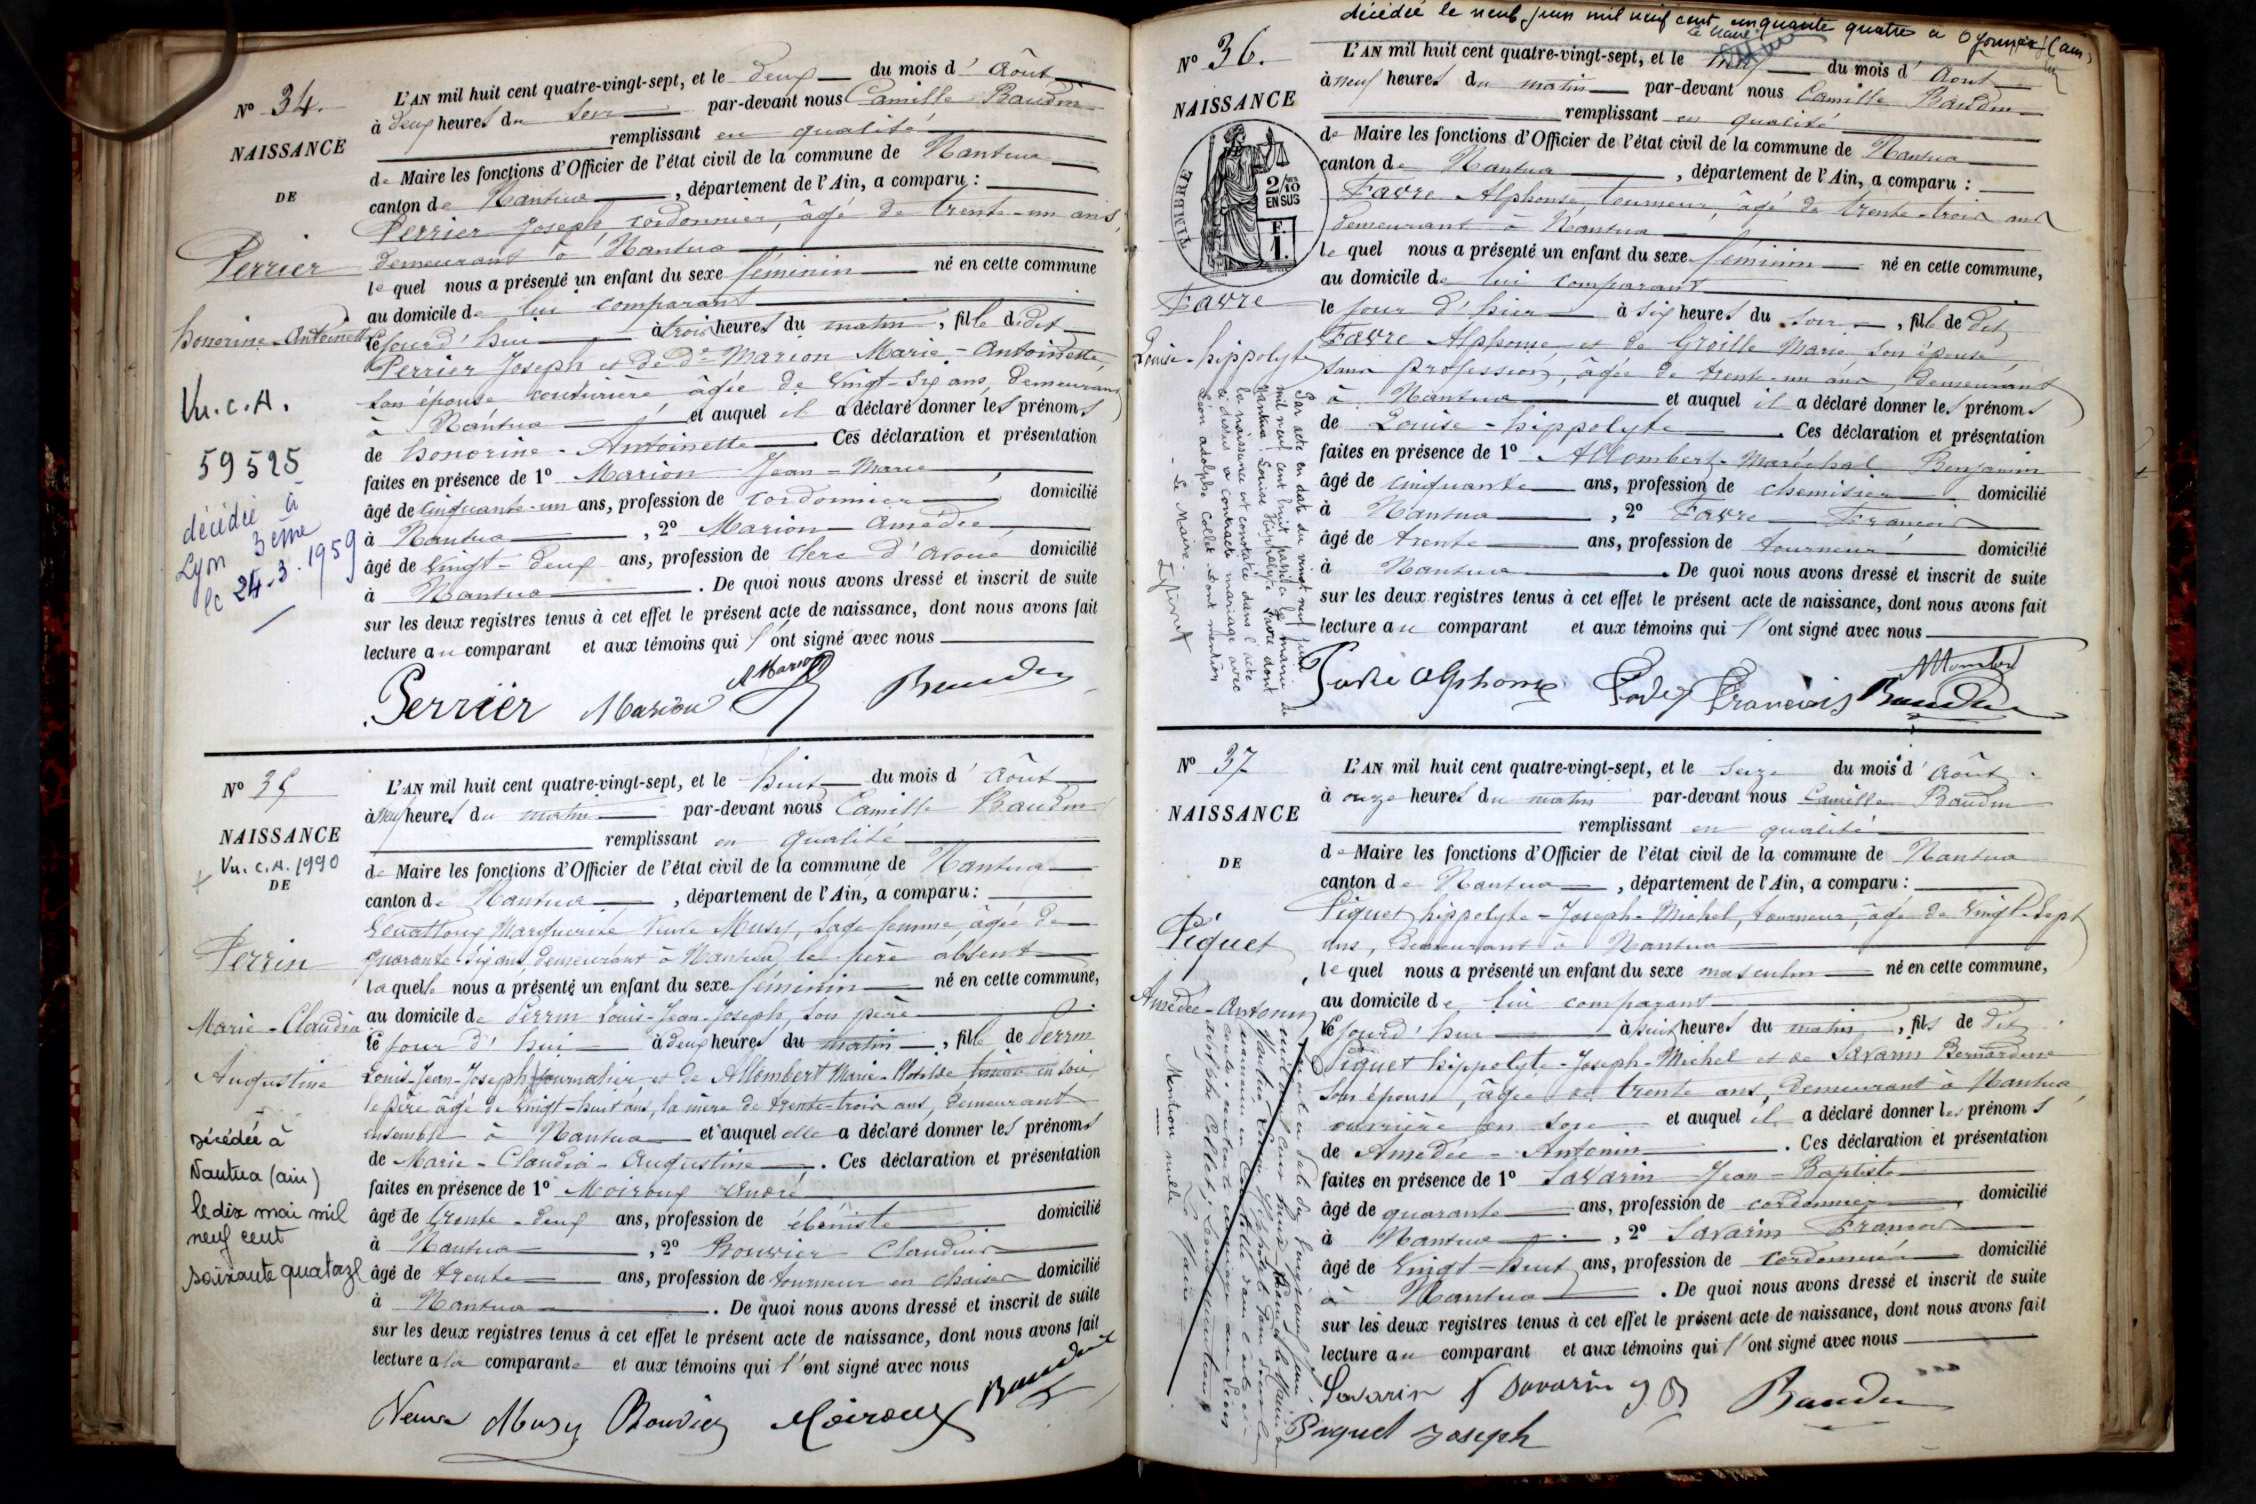 N° 34.
NAISSANCE
DE
Perrier
honorine-Antoinette
Vu. C. A.
59525
décédée à
Lyon 3ème
le 24.3.1959
L'AN mil huit cent quatre-vingt-sept, et le deux du mois d'Août
à deux heures du soir par-devant nous Camille Baudin
remplissant en qualité
de Maire les fonctions d'Officier de l'état civil de la commune de Nantua
canton de Nantua, département de l'Ain, a comparu :
Perrier Joseph, cordonnier, âgé de trente-un ans,
demeurant à Nantua
lequel nous a présenté un enfant du sexe féminin né en cette commune
au domicile de lui comparant
le jourd'hui à trois heures du matin, fille dudit
Perrier Joseph et de De Marion Marie-Antoinette,
son épouse couturière âgée de vingt-six ans, demeurant
à Nantua et auquel il a déclaré donner les prénoms
de honorine-Antoinette. Ces déclaration et présentation
faites en présence de 1° Marion Jean-Marie,
âgé de cinquante-un ans, profession de cordonnier domicilié
à Nantua, 2° Marion Amédée
âgé de vingt-deux ans, profession de clerc d'avoué domicilié
à Nantua. De quoi nous avons dressé et inscrit de suite
sur les deux registres tenus à cet effet le présent acte de naissance, dont nous avons fait
lecture au comparant et aux témoins qui l'ont signé avec nous
Perrier Marion AMarion Baudin
N° 35
NAISSANCE
Vu. C. A. 1990
DE
Perrin
Marie-Claudia
Augustine
décédée à
Nantua (ain)
le dix mai mil
neuf cent
soixante quatorze
L'AN mil huit cent quatre-vingt-sept, et le huit du mois d'Août
à neuf heures du matin par-devant nous Camille Baudin
remplissant en qualité
de Maire les fonctions d'Officier de l'état civil de la commune de Nantua
canton de Nantua, département de l'Ain, a comparu :
Marguerite Veuve Musy, sage femme, âgée de
quarante-six ans, demeurant à Nantua, le père absent
laquelle nous a présenté un enfant du sexe féminin né en cette commune,
au domicile de Perrin Louis-Jean-Joseph, son père
le jour d'hui à deux heures du matin, fille de Perrin
Louis-Jean-Joseph journalier, et de Allombert Marie-Clotilde en soie,
le père âgé de vingt-huit ans, la mère de trente-trois ans, demeurant
ensemble à Nantua et auquel elle a déclaré donner les prénoms
de Marie-Claudia-Augustine. Ces déclaration et présentation
faites en présence de 1° Moiroux André
âgé de trente-deux ans, profession de ébéniste domicilié
à Nantua, 2° Bouvier Claudius
âgé de trente ans, profession de tourneur en chaises domicilié
à Nantua. De quoi nous avons dressé et inscrit de suite
sur les deux registres tenus à cet effet le présent acte de naissance, dont nous avons fait
lecture a la comparante et aux témoins qui l'ont signé avec nous
Veuve Musy Bouvier Moiroux Baudin
décédée le neuf juin mil neuf cent cinquante quatre à Oyonnax (ain)
N° 36.
NAISSANCE
TIMBRE
2/10
EN SUS
F.
1.
Favre
Louise-hippolyte
Par acte en date du vingt neuf juin
mil neuf cent huit passé à la mairie de
Nantua Louise Hippolyte Favre dont
la naissance est constatée dans l'acte
ci-dessus a contracté mariage avec
Léon adolphe Collet dont mention
Le Maire
L'AN mil huit cent quatre-vingt-sept, et le du mois d'Août
à neuf heures du matin par-devant nous Camille Baudin
remplissant en qualité
de Maire les fonctions d'Officier de l'état civil de la commune de Nantua
canton de Nantua, département de l'Ain, a comparu :
Favre Alphonse, tourneur, âgé de trente-trois ans
demeurant à Nantua
lequel nous a présenté un enfant du sexe féminin né en cette commune,
au domicile de lui comparant
le jour d'hier à six heures du soir, fille de dit
Favre Alphonse et de Groille Marie, son épouse
sans profession, âgée de trente-un ans, demeurant
à Nantua et auquel il a déclaré donner les prénoms
de Louise-hippolyte. Ces déclaration et présentation
faites en présence de 1° Allombert-Maréchal Benjamin
âgé de cinquante ans, profession de chemisier domicilié
à Nantua, 2° Favre François
âgé de trente ans, profession de tourneur domicilié
à Nantua. De quoi nous avons dressé et inscrit de suite
sur les deux registres tenus à cet effet le présent acte de naissance, dont nous avons fait
lecture au comparant et aux témoins qui l'ont signé avec nous
Favre Alphonse François Allombert Baudin
N° 37
NAISSANCE
DE
Piquet
Amédée-Antonin
Mention nulle
Le Maire
L'AN mil huit cent quatre-vingt-sept, et le seize du mois d'Août
à onze heures du matin par-devant nous Camille Baudin
remplissant en qualité
de Maire les fonctions d'Officier de l'état civil de la commune de Nantua
canton de Nantua, département de l'Ain, a comparu :
Piquet hippolyte-Joseph-Michel, tourneur, âgé de vingt-sept
ans, demeurant à Nantua
lequel nous a présenté un enfant du sexe masculin né en cette commune,
au domicile de lui comparant
le jourd'hui à huit heures du matin, fils de dit
Piquet hippolyte-Joseph-Michel et de Savarin Bernardine
son épouse, âgée de trente ans, demeurant à Nantua,
ouvrière en soie et auquel il a déclaré donner les prénoms
de Amédée-Antonin. Ces déclaration et présentation
faites en présence de 1° Savarin Jean-Baptiste
âgé de quarante ans, profession de cordonnier domicilié
à Nantua, 2° Savarin François
âgé de vingt-huit ans, profession de cordonnier domicilié
à Nantua. De quoi nous avons dressé et inscrit de suite
sur les deux registres tenus à cet effet le présent acte de naissance, dont nous avons fait
lecture au comparant et aux témoins qui l'ont signé avec nous
Savarin F Savarin J. B Baudin
Piquet Joseph